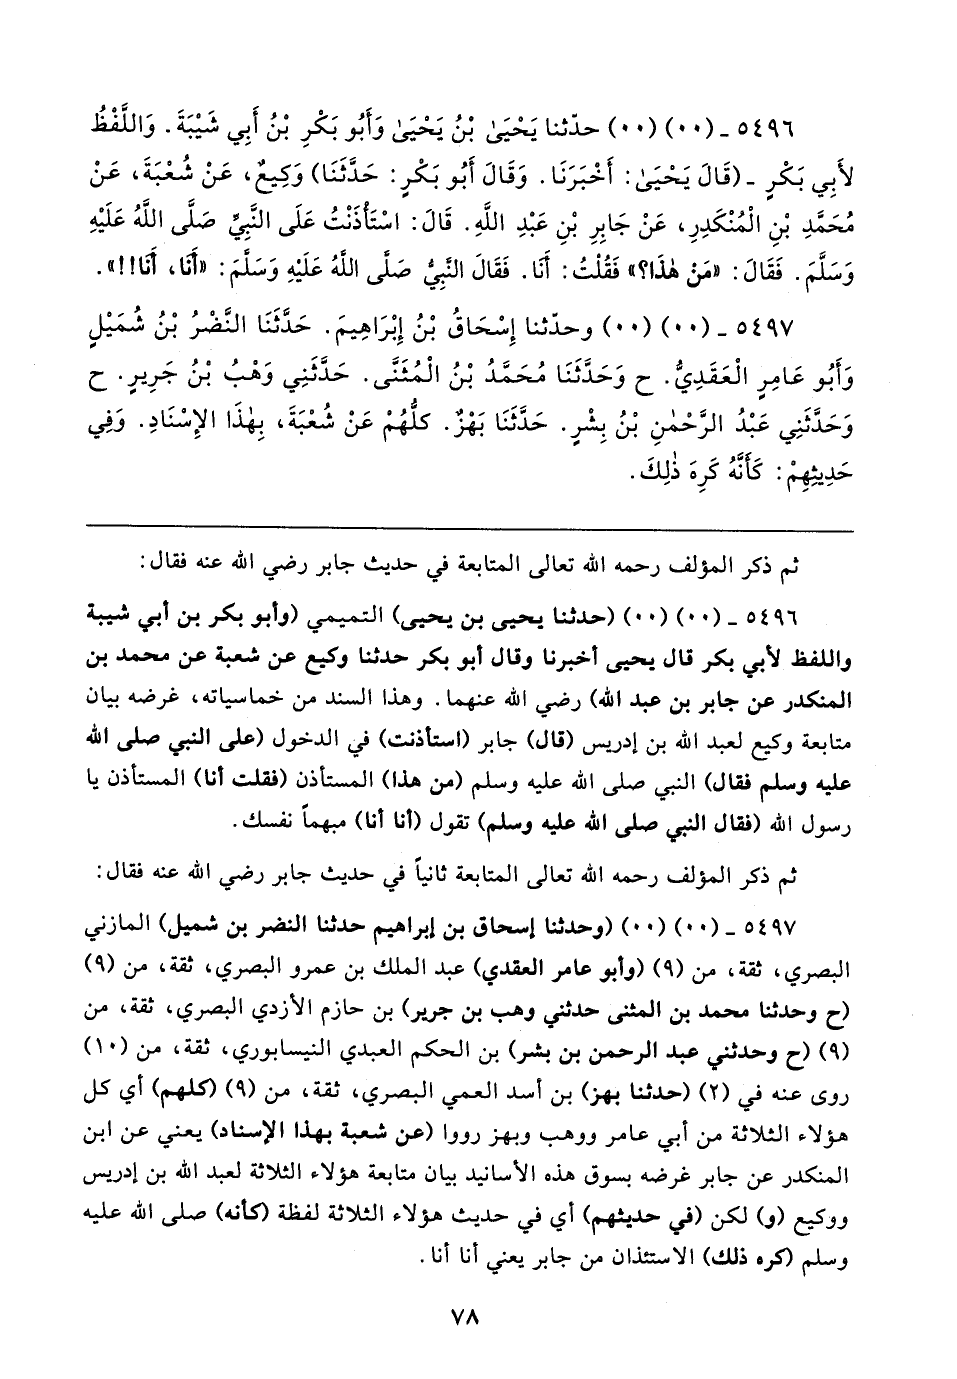 ٥٤٩٦ ـ (٠٠) (٠٠) حدّثنا يَحْيَىٰ بْنُ يَحْيَىٰ وَأَبُو بَكْرِ بْنُ أَبِي شَيْبَةَ. وَاللَّفْظُ
لأَبِي بَكْرٍ ـ (قَالَ يَحْيَىٰ: أَخْبَرَنَا. وَقَالَ أَبُو بَكْرٍ: حَدَّثَنَا) وَكِيعٌ، عَنْ شُعْبَةَ، عَنْ
مُحَمَّدِ بْنِ الْمُنْكَدِرِ، عَنْ جَابِرِ بْنِ عَبْدِ اللَّهِ. قَالَ: اسْتَأْذَنْتُ عَلَى النَّبِيِّ صَلَّى اللَّهُ عَلَيْهِ
وَسَلَّمَ. فَقَالَ: «مَنْ هٰذَا؟» فَقُلْتُ: أَنَا. فَقَالَ النَّبِيُّ صَلَّى اللَّهُ عَلَيْهِ وَسَلَّمَ: «أَنَا، أَنَا!!».
٥٤٩٧ ـ (٠٠) (٠٠) وحدّثنا إِسْحَاقُ بْنُ إِبْرَاهِيمَ. حَدَّثَنَا النَّضْرُ بْنُ شُمَيْلٍ
وَأَبُو عَامِرٍ الْعَقَدِيُّ. ح وَحَدَّثَنَا مُحَمَّدُ بْنُ الْمُثَنَّى. حَدَّثَنِي وَهْبُ بْنُ جَرِيرٍ. ح
وَحَدَّثَنِي عَبْدُ الرَّحْمٰنِ بْنُ بِشْرٍ. حَدَّثَنَا بَهْزٌ. كلُّهُمْ عَنْ شُعْبَةَ، بِهٰذَا الإِسْنَادِ. وَفِي
حَدِيثِهِمْ: كَأَنَّهُ كَرِهَ ذٰلِكَ.
ثم ذكر المؤلف رحمه الله تعالى المتابعة في حديث جابر رضي الله عنه فقال:
٥٤٩٦ ـ (٠٠) (٠٠) (حدثنا يحيى بن يحيى) التميمي (وأبو بكر بن أبي شيبة
واللفظ لأبي بكر قال يحيى أخبرنا وقال أبو بكر حدثنا وكيع عن شعبة عن محمد بن
المنكدر عن جابر بن عبد الله) رضي الله عنهما. وهذا السند من خماسياته، غرضه بيان
متابعة وكيع لعبد الله بن إدريس (قال) جابر (استأذنت) في الدخول (على النبي صلى الله
عليه وسلم فقال) النبي صلى الله عليه وسلم (من هذا) المستأذن (فقلت أنا) المستأذن يا
رسول الله (فقال النبي صلى الله عليه وسلم) تقول (أنا أنا) مبهماً نفسك.
ثم ذكر المؤلف رحمه الله تعالى المتابعة ثانياً في حديث جابر رضي الله عنه فقال:
٥٤٩٧ ـ (٠٠) (٠٠) (وحدثنا إسحاق بن إبراهيم حدثنا النضر بن شميل) المازني
البصري، ثقة، من (٩) (وأبو عامر العقدي) عبد الملك بن عمرو البصري، ثقة، من (٩)
(ح وحدثنا محمد بن المثنى حدثني وهب بن جرير) بن حازم الأزدي البصري، ثقة، من
(٩) (ح وحدثني عبد الرحمن بن بشر) بن الحكم العبدي النيسابوري، ثقة، من (١٠)
روى عنه في (٢) (حدثنا بهز) بن أسد العمي البصري، ثقة، من (٩) (كلهم) أي كل
هؤلاء الثلاثة من أبي عامر ووهب وبهز رووا (عن شعبة بهذا الإسناد) يعني عن ابن
المنكدر عن جابر غرضه بسوق هذه الأسانيد بيان متابعة هؤلاء الثلاثة لعبد الله بن إدريس
ووكيع (و) لكن (في حديثهم) أي في حديث هؤلاء الثلاثة لفظة (كأنه) صلى الله عليه
وسلم (كره ذلك) الاستئذان من جابر يعني أنا أنا.
٧٨